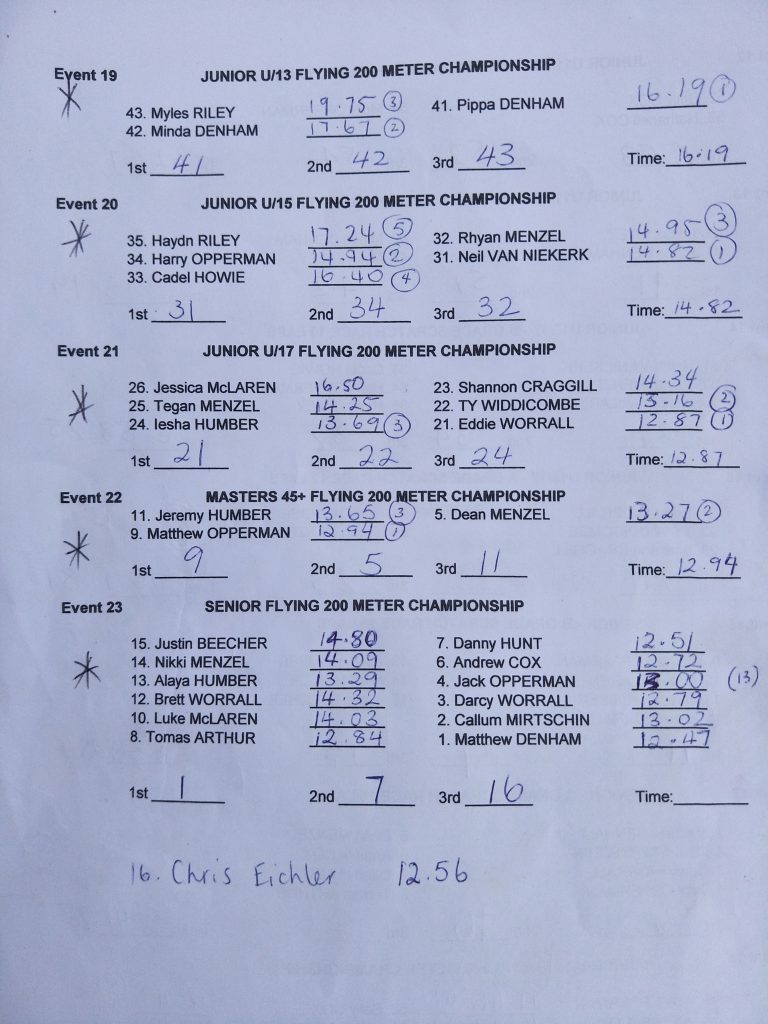 Event 19 JUNIOR U/13 FLYING 200 METER CHAMPIONSHIP
43. Myles RILEY 19.75 (3) 41. Pippa DENHAM 16.19 (1)
42. Minda DENHAM 17.67 (2)
1st 41 2nd 42 3rd 43 Time: 16.19
Event 20 JUNIOR U/15 FLYING 200 METER CHAMPIONSHIP
35. Haydn RILEY 17.24 (5) 32. Rhyan MENZEL 14.95 (3)
34. Harry OPPERMAN 14.94 (2) 31. Neil VAN NIEKERK 14.82 (1)
33. Cadel HOWIE 16.40 (4)
1st 31 2nd 34 3rd 32 Time: 14.82
Event 21 JUNIOR U/17 FLYING 200 METER CHAMPIONSHIP
26. Jessica McLAREN 16.50 23. Shannon CRAGGILL 14.34
25. Tegan MENZEL 14.25 22. TY WIDDICOMBE 13.16 (2)
24. Iesha HUMBER 13.69 (3) 21. Eddie WORRALL 12.87 (1)
1st 21 2nd 22 3rd 24 Time: 12.87
Event 22 MASTERS 45+ FLYING 200 METER CHAMPIONSHIP
11. Jeremy HUMBER 13.65 (3) 5. Dean MENZEL 13.27 (2)
9. Matthew OPPERMAN 12.94 (1)
1st 9 2nd 5 3rd 11 Time: 12.94
Event 23 SENIOR FLYING 200 METER CHAMPIONSHIP
15. Justin BEECHER 14.80 7. Danny HUNT 12.51
14. Nikki MENZEL 14.09 6. Andrew COX 12.72
13. Alaya HUMBER 13.29 4. Jack OPPERMAN 13.00 (13)
12. Brett WORRALL 14.32 3. Darcy WORRALL 12.79
10. Luke McLAREN 14.03 2. Callum MIRTSCHIN 13.02
8. Tomas ARTHUR 12.84 1. Matthew DENHAM 12.47
1st 1 2nd 7 3rd 16 Time:
16. Chris Eichler 12.56